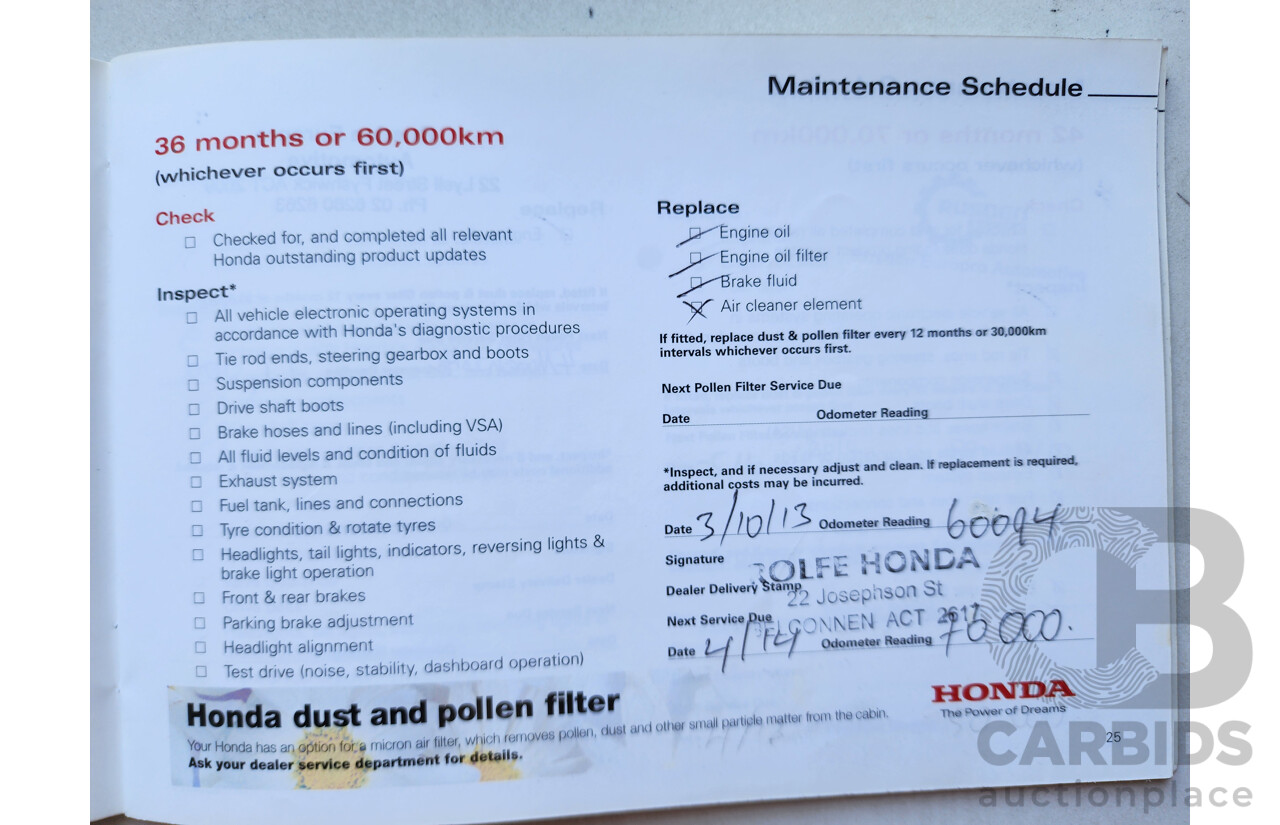 Maintenance Schedule
36 months or 60,000km
(whichever occurs first)
Check
Checked for, and completed all relevant
Honda outstanding product updates
Inspect*
All vehicle electronic operating systems in
accordance with Honda's diagnostic procedures
Tie rod ends, steering gearbox and boots
Suspension components
Drive shaft boots
Brake hoses and lines (including VSA)
All fluid levels and condition of fluids
Exhaust system
Fuel tank, lines and connections
Tyre condition & rotate tyres
Headlights, tail lights, indicators, reversing lights &
brake light operation
Front & rear brakes
Parking brake adjustment
Headlight alignment
Test drive (noise, stability, dashboard operation)
Replace
Engine oil
Engine oil filter
Brake fluid
Air cleaner element
If fitted, replace dust & pollen filter every 12 months or 30,000km
intervals whichever occurs first.
Next Pollen Filter Service Due
Date Odometer Reading
*Inspect, and if necessary adjust and clean. If replacement is required,
additional costs may be incurred.
Date 3/10/13 Odometer Reading 60094
Signature
ROLFE HONDA
Dealer Delivery Stamp
22 Josephson St
Next Service Due
BELCONNEN ACT 2617
Date 4/14 Odometer Reading 70000.
Honda dust and pollen filter
Your Honda has an option for a micron air filter, which removes pollen, dust and other small particle matter from the cabin.
Ask your dealer service department for details.
HONDA
The Power of Dreams
25
CB
CARBIDS
auctionplace